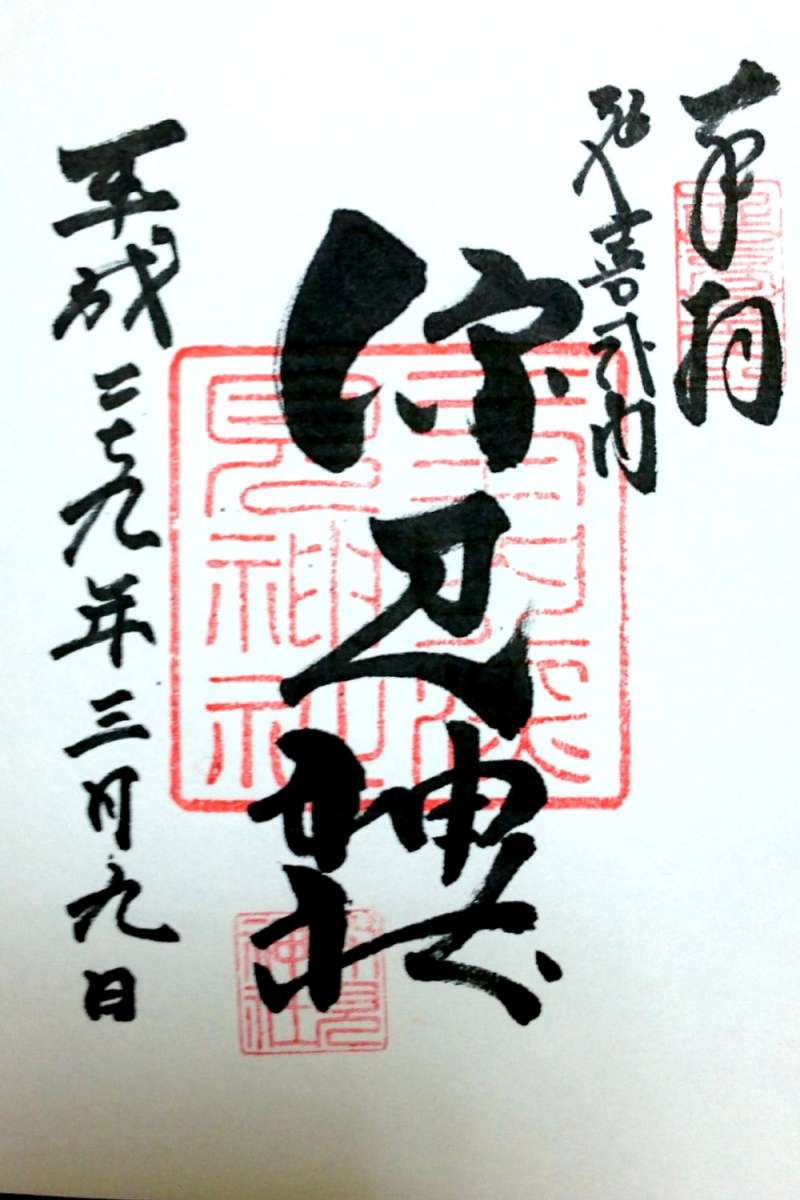 奉拝
延喜式内
弥刀神社
平成二十九年三月九日